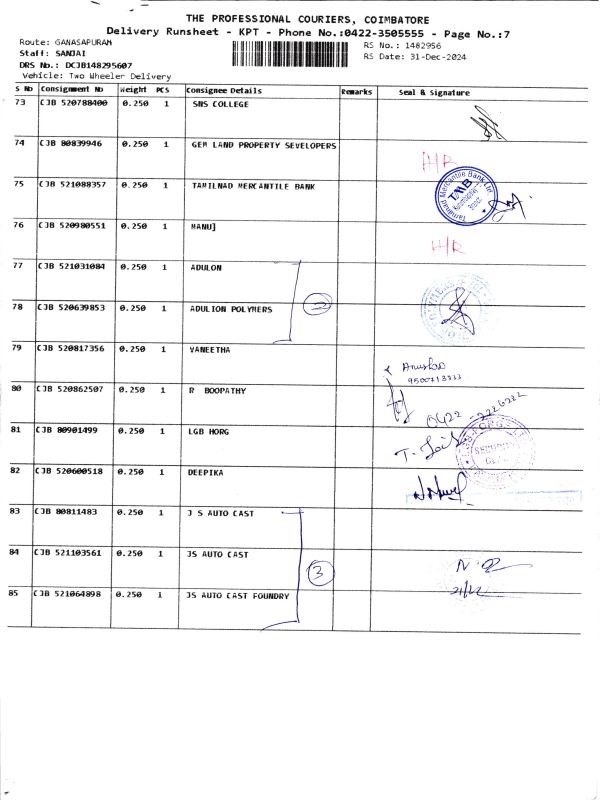 THE PROFESSIONAL COURIERS, COIMBATORE
Delivery Runsheet - KPT - Phone No.:0422-3505555 - Page No.:7
Route: GANASAPURAM
RS No.: 1482956
Staff: SANJAI
RS Date: 31-Dec-2024
DRS No.: DCJB148295607
Vehicle: Two Wheeler Delivery
S No Consignment No Weight PCS Consignee Details Remarks Seal & Signature
73 CJB 520788400 0.250 1 SNS COLLEGE
74 CJB 80839946 0.250 1 GEM LAND PROPERTY SEVELOPERS
H/R
75 CJB 521088357 0.250 1 TAMILNAD MERCANTILE BANK
Tamilnad Mercantile Bank Ltd
TMB
76 CJB 520980551 0.250 1 MANUJ
H/R
77 CJB 521031084 0.250 1 ADULON
78 CJB 520639853 0.250 1 ADULION POLYMERS
2
79 CJB 520817356 0.250 1 VANEETHA
80 CJB 520862507 0.250 1 R BOOPATHY
0422 - 2226222
81 CJB 80901499 0.250 1 LGB HORG
SECURITY
82 CJB 520600518 0.250 1 DEEPIKA
83 CJB 80811483 0.250 1 J S AUTO CAST
84 CJB 521103561 0.250 1 JS AUTO CAST
3
85 CJB 521064898 0.250 1 JS AUTO CAST FOUNDRY